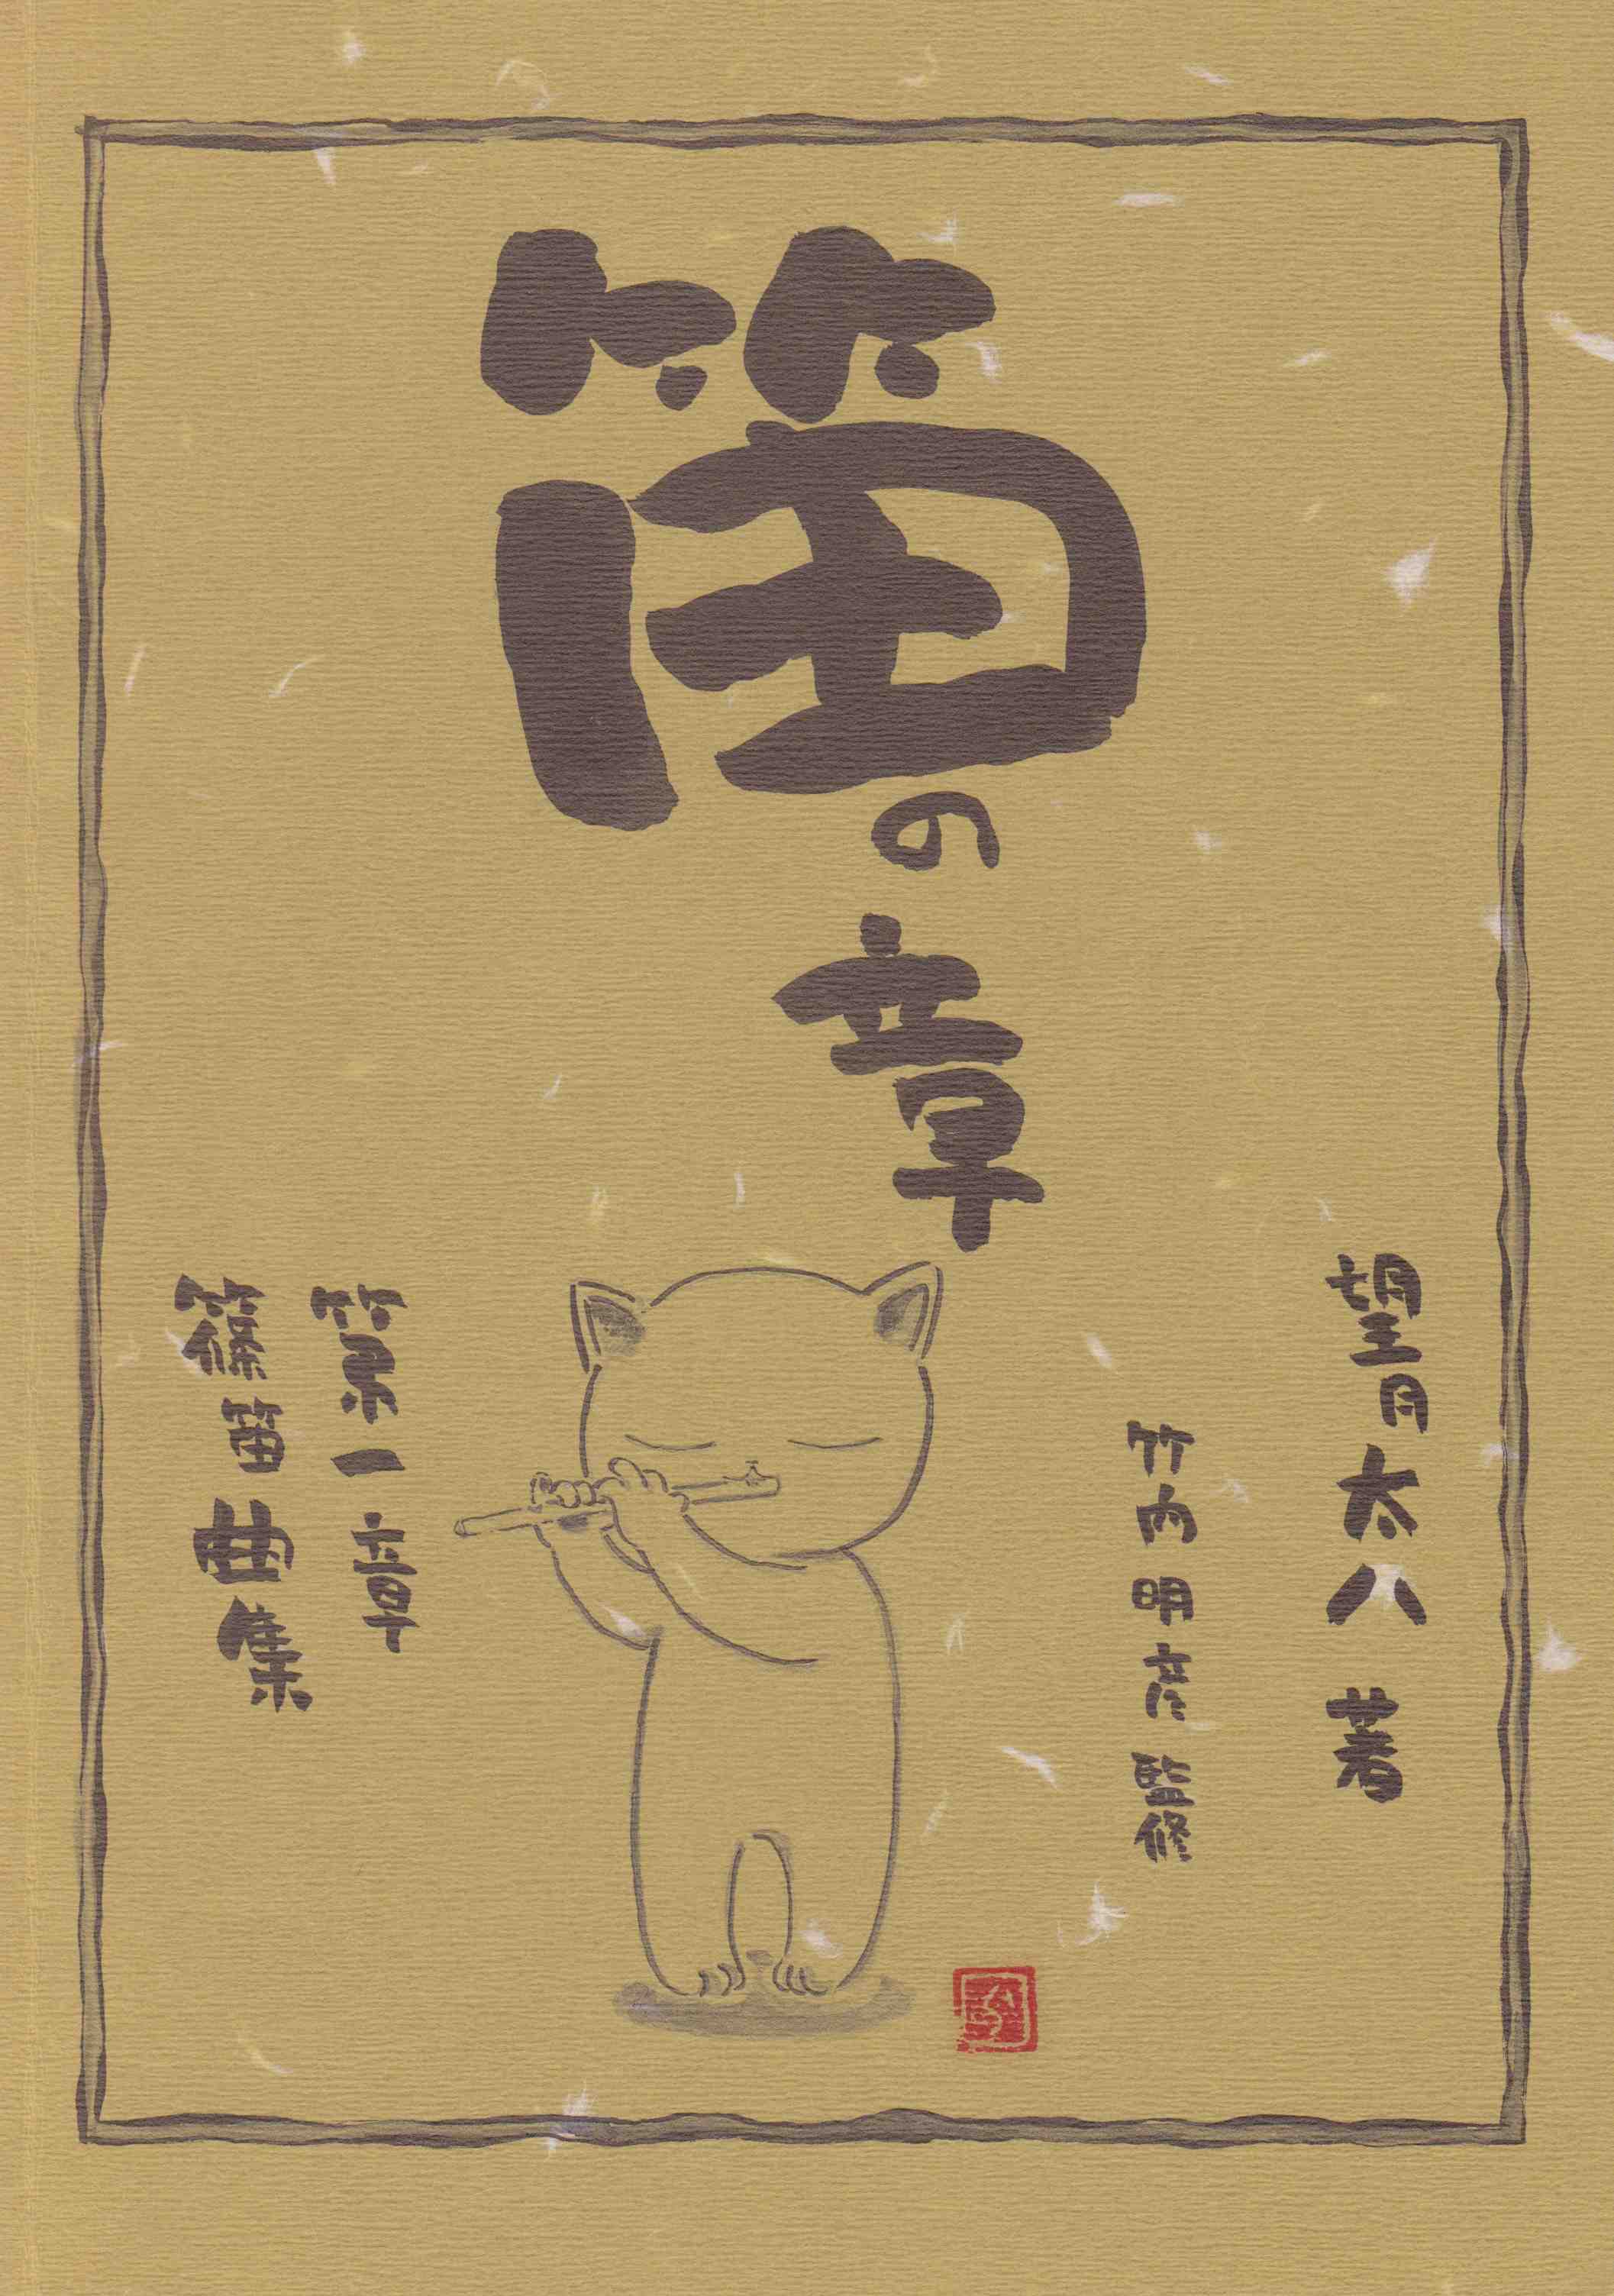 笛の章
望月太八 著
竹内明彦 監修
第一章
篠笛曲集